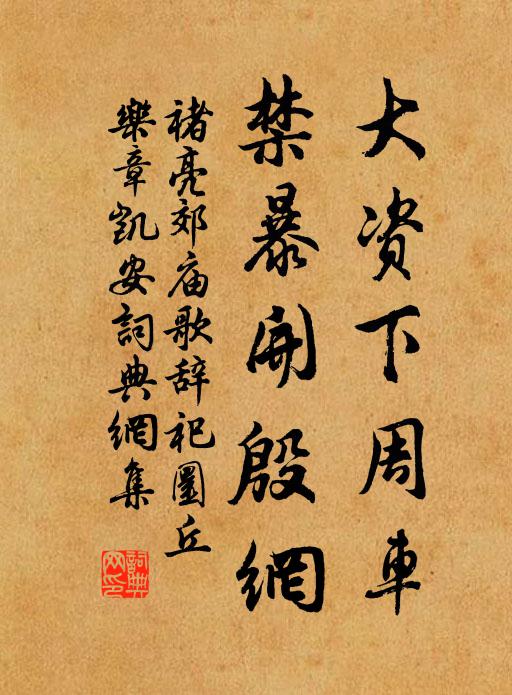 大资下周車
禁暴開殷網
褚亮郊庙歌辞祀圜丘
樂章凱安詞典網集
詞典网印